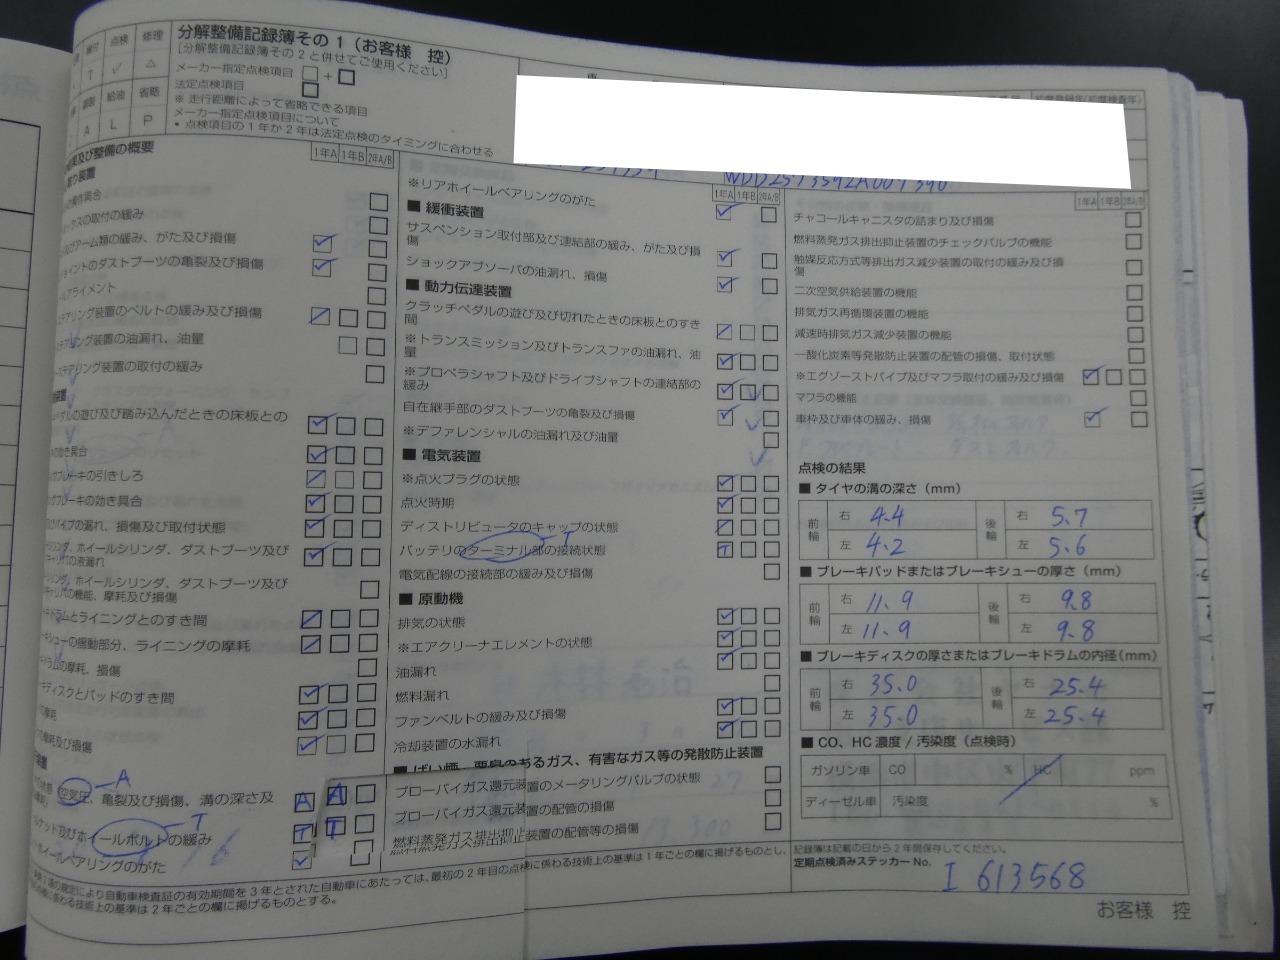 締付 点検 修理
T ✓ △
調整 給油 省略
A L P
分解整備記録簿その1（お客様 控）
［分解整備記録簿その2と併せてご使用ください］
メーカー指定点検項目 □＋□
法定点検項目 □
※走行距離によって省略できる項目
メーカー指定点検項目について
・点検項目の1年か2年は法定点検のタイミングに合わせる
及び整備の概要
1年A 1年B 2年A/B
装置
具合
の取付の緩み
アーム類の緩み、がた及び損傷
ジョイントのダストブーツの亀裂及び損傷
アライメント
装置のベルトの緩み及び損傷
装置の油漏れ、油量
装置の取付の緩み
装置
の遊び及び踏み込んだときの床板との
効き具合
ブレーキの引きしろ
ブレーキの効き具合
パイプの漏れ、損傷及び取付状態
ホイールシリンダ、ダストブーツ及び
の液漏れ
ホイールシリンダ、ダストブーツ及び
の機能、摩耗及び損傷
ドラムとライニングとのすき間
シューの摺動部分、ライニングの摩耗
ドラムの摩耗、損傷
ディスクとパッドのすき間
の摩耗
摩耗及び損傷
装置
A
空気圧、亀裂及び損傷、溝の深さ及 A A
T
ホイールボルトの緩み T T
ホイールベアリングのがた
の規定により自動車検査証の有効期間を3年とされた自動車にあたっては、最初の2年目の点検に係わる技術上の基準は1年ごとの欄に掲げるものとし、
に係わる技術上の基準は2年ごとの欄に掲げるものとする。
※リアホイールベアリングのがた
1年A 1年B 2年A/B
■ 緩衝装置
サスペンション取付部及び連結部の緩み、がた及び損
傷
ショックアブソーバの油漏れ、損傷
■ 動力伝達装置
クラッチペダルの遊び及び切れたときの床板とのすき
間
※トランスミッション及びトランスファの油漏れ、油
量
※プロペラシャフト及びドライブシャフトの連結部の
緩み
自在継手部のダストブーツの亀裂及び損傷
※デファレンシャルの油漏れ及び油量
■ 電気装置
※点火プラグの状態
点火時期
ディストリビュータのキャップの状態
T
バッテリのターミナル部の接続状態 T
電気配線の接続部の緩み及び損傷
■ 原動機
排気の状態
※エアクリーナエレメントの状態
油漏れ
燃料漏れ
ファンベルトの緩み及び損傷
冷却装置の水漏れ
■ ばい煙、悪臭のあるガス、有害なガス等の発散防止装置
ブローバイガス還元装置のメータリングバルブの状態
ブローバイガス還元装置の配管の損傷
燃料蒸発ガス排出抑止装置の配管等の損傷
1年A 1年B 2年A/B
チャコールキャニスタの詰まり及び損傷
燃料蒸発ガス排出抑止装置のチェックバルブの機能
触媒反応方式等排出ガス減少装置の取付の緩み及び損
傷
二次空気供給装置の機能
排気ガス再循環装置の機能
減速時排気ガス減少装置の機能
一酸化炭素等発散防止装置の配管の損傷、取付状態
※エグゾーストパイプ及びマフラ取付の緩み及び損傷
マフラの機能
車枠及び車体の緩み、損傷
点検の結果
■ タイヤの溝の深さ（mm）
前輪 右 4.4 後輪 右 5.7
左 4.2 左 5.6
■ ブレーキパッドまたはブレーキシューの厚さ（mm）
前輪 右 11.9 後輪 右 9.8
左 11.9 左 9.8
■ ブレーキディスクの厚さまたはブレーキドラムの内径(mm)
前輪 右 35.0 後輪 右 25.4
左 35.0 左 25.4
■ CO、HC濃度/汚染度（点検時）
ガソリン車 CO % HC ppm
ディーゼル車 汚染度 %
記録簿は記載の日から2年間保存してください。
定期点検済みステッカー No. I 613568
お客様 控